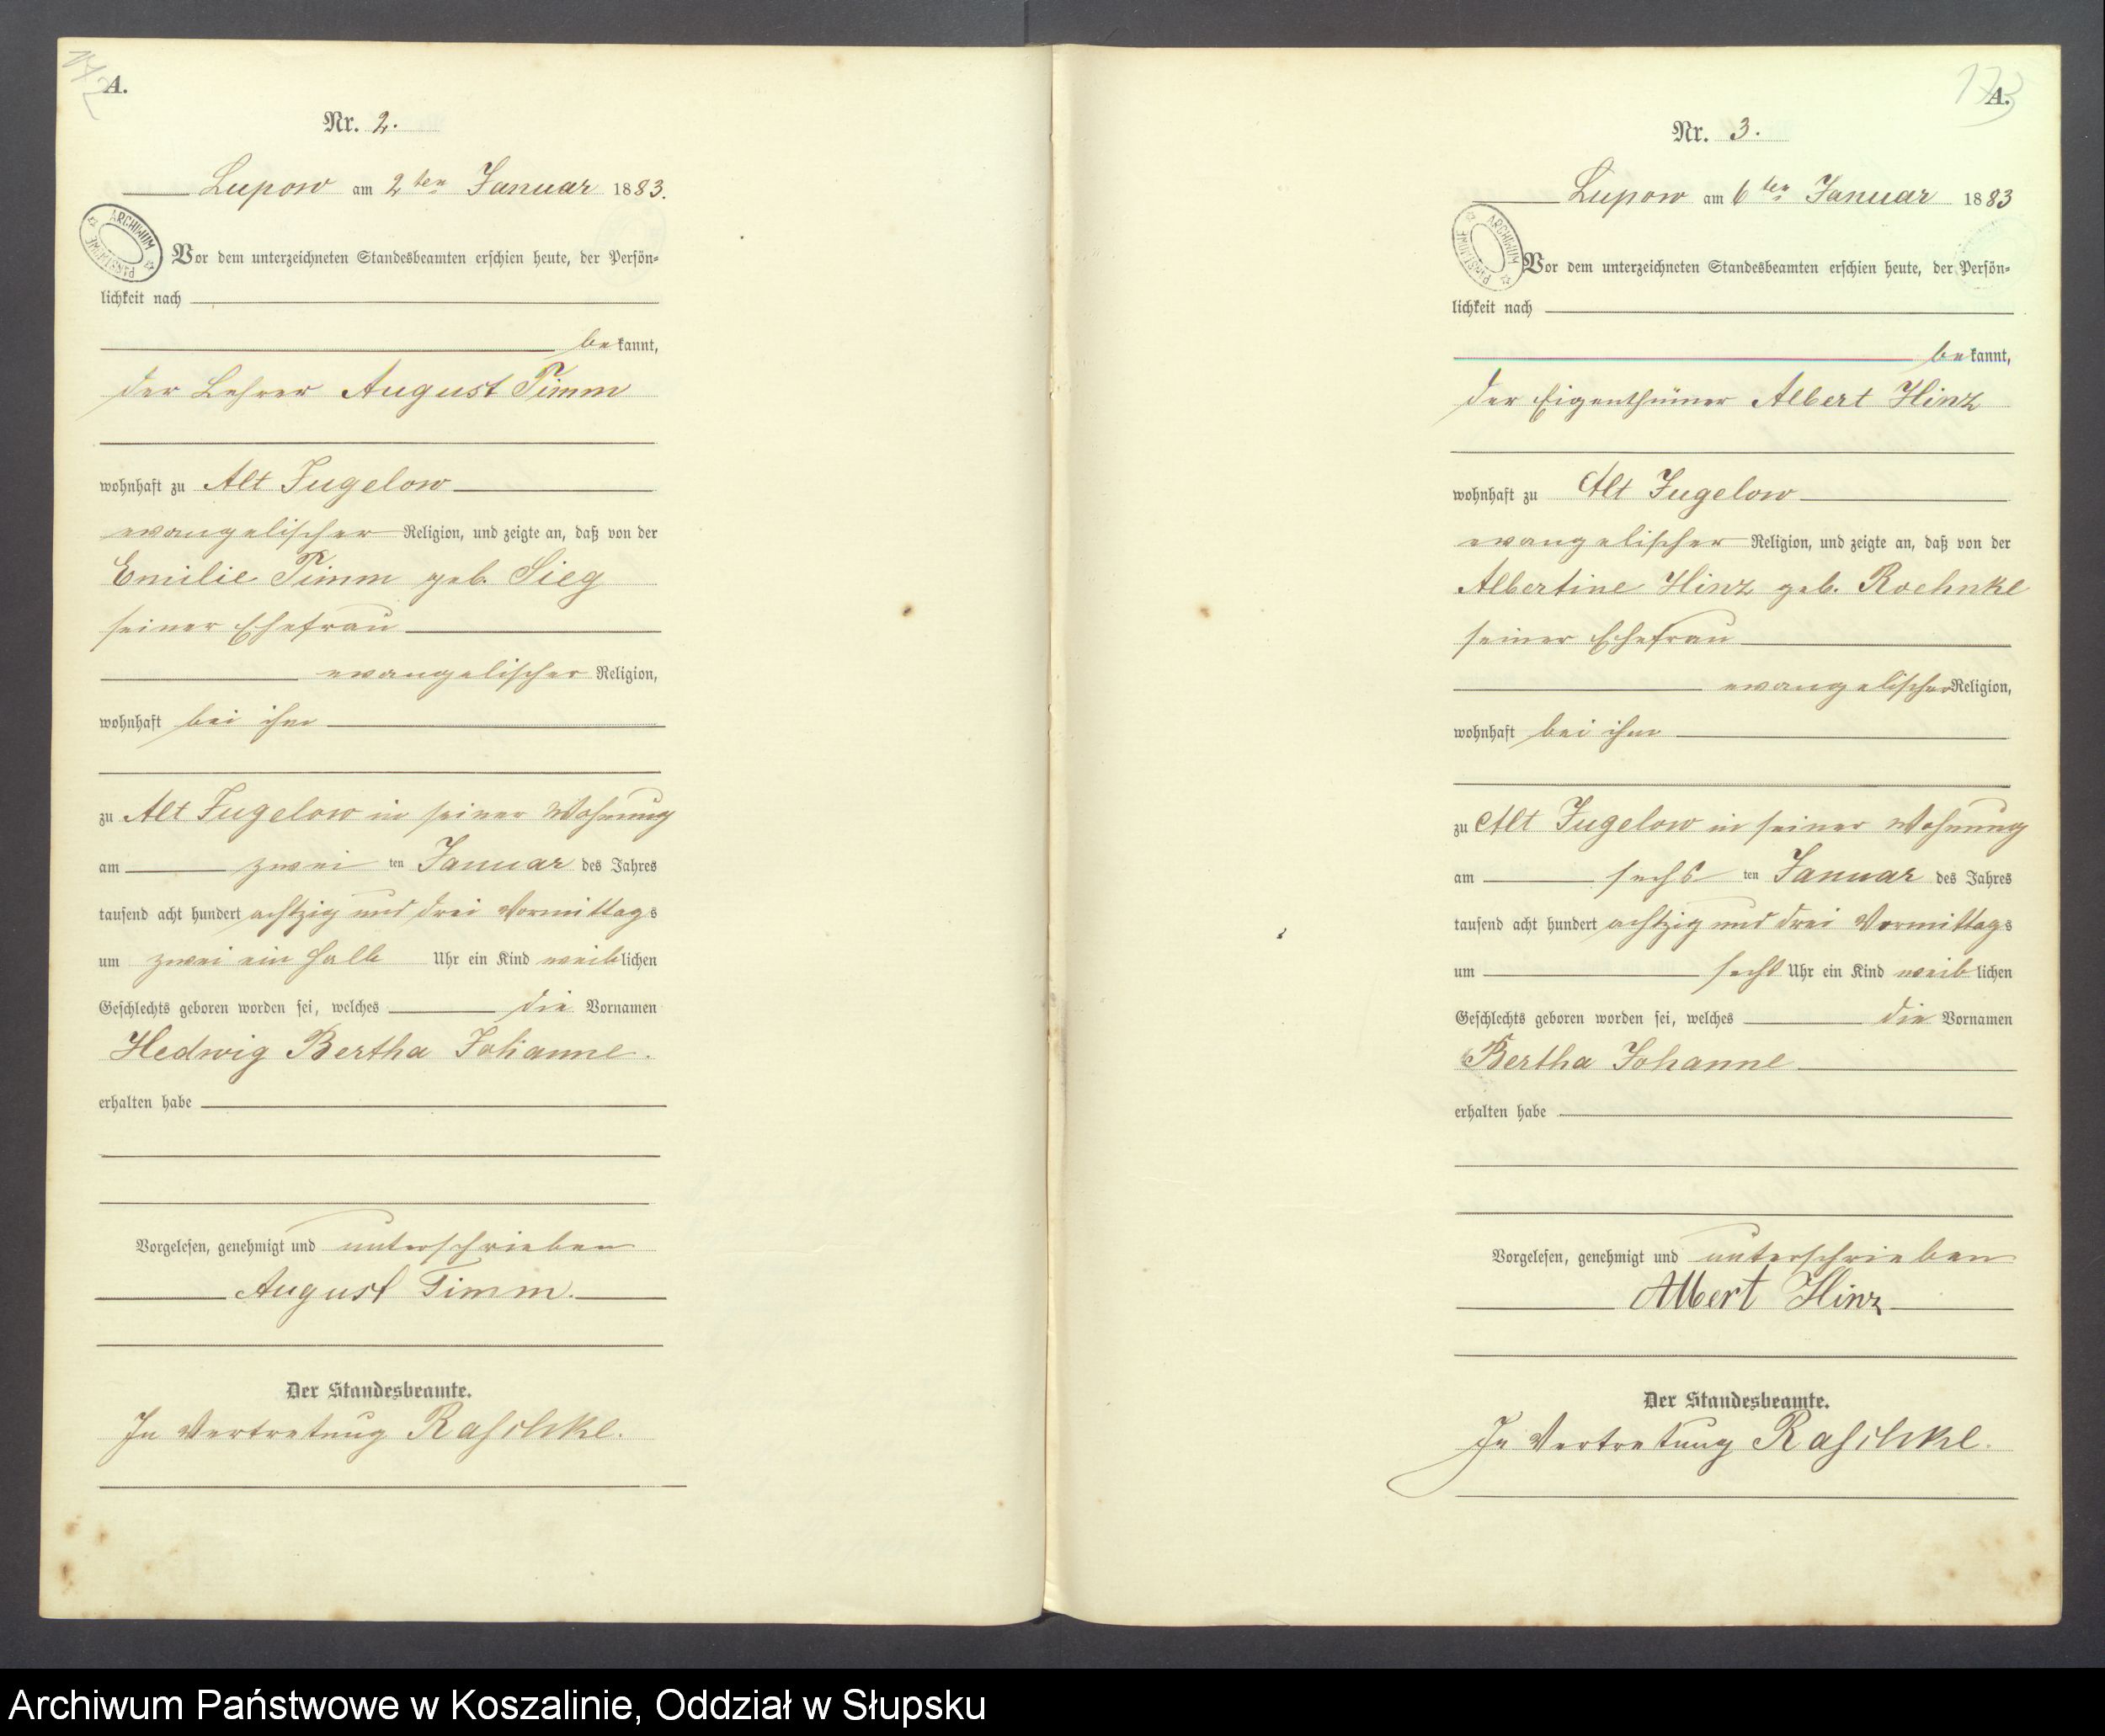 172
A.
Nr. 2.
Lupow am 2ten Januar 1883.
ARCHIWUM PAŃSTWOWE
Vor dem unterzeichneten Standesbeamten erschien heute, der Persön-
lichkeit nach
bekannt,
der Lehrer August Timm
wohnhaft zu Alt Jugelow
evangelischer Religion, und zeigte an, daß von der
Emilie Timm geb. Sieg
seiner Ehefrau
evangelischer Religion,
wohnhaft bei ihm
zu Alt Jugelow in seiner Wohnung
am zwei ten Januar des Jahres
tausend acht hundert achtzig und drei Vormittags
um zwei ein halb Uhr ein Kind weiblichen
Geschlechts geboren worden sei, welches die Vornamen
Hedwig Bertha Johanne.
erhalten habe
Vorgelesen, genehmigt und unterschrieben
August Timm.
Der Standesbeamte.
In Vertretung Raschke.
173
A.
Nr. 3.
Lupow am 6ten Januar 1883
ARCHIWUM PAŃSTWOWE
Vor dem unterzeichneten Standesbeamten erschien heute, der Persön-
lichkeit nach
bekannt,
der Eigenthümer Albert Hinz
wohnhaft zu Alt Jugelow
evangelischer Religion, und zeigte an, daß von der
Albertine Hinz geb. Roehnke
seiner Ehefrau
evangelischer Religion,
wohnhaft bei ihm
zu Alt Jugelow in seiner Wohnung
am sechs ten Januar des Jahres
tausend acht hundert achtzig und drei Vormittags
um sechs Uhr ein Kind weiblichen
Geschlechts geboren worden sei, welches die Vornamen
Bertha Johanne
erhalten habe
Vorgelesen, genehmigt und unterschrieben
Albert Hinz
Der Standesbeamte.
In Vertretung Raschke.
Archiwum Państwowe w Koszalinie, Oddział w Słupsku